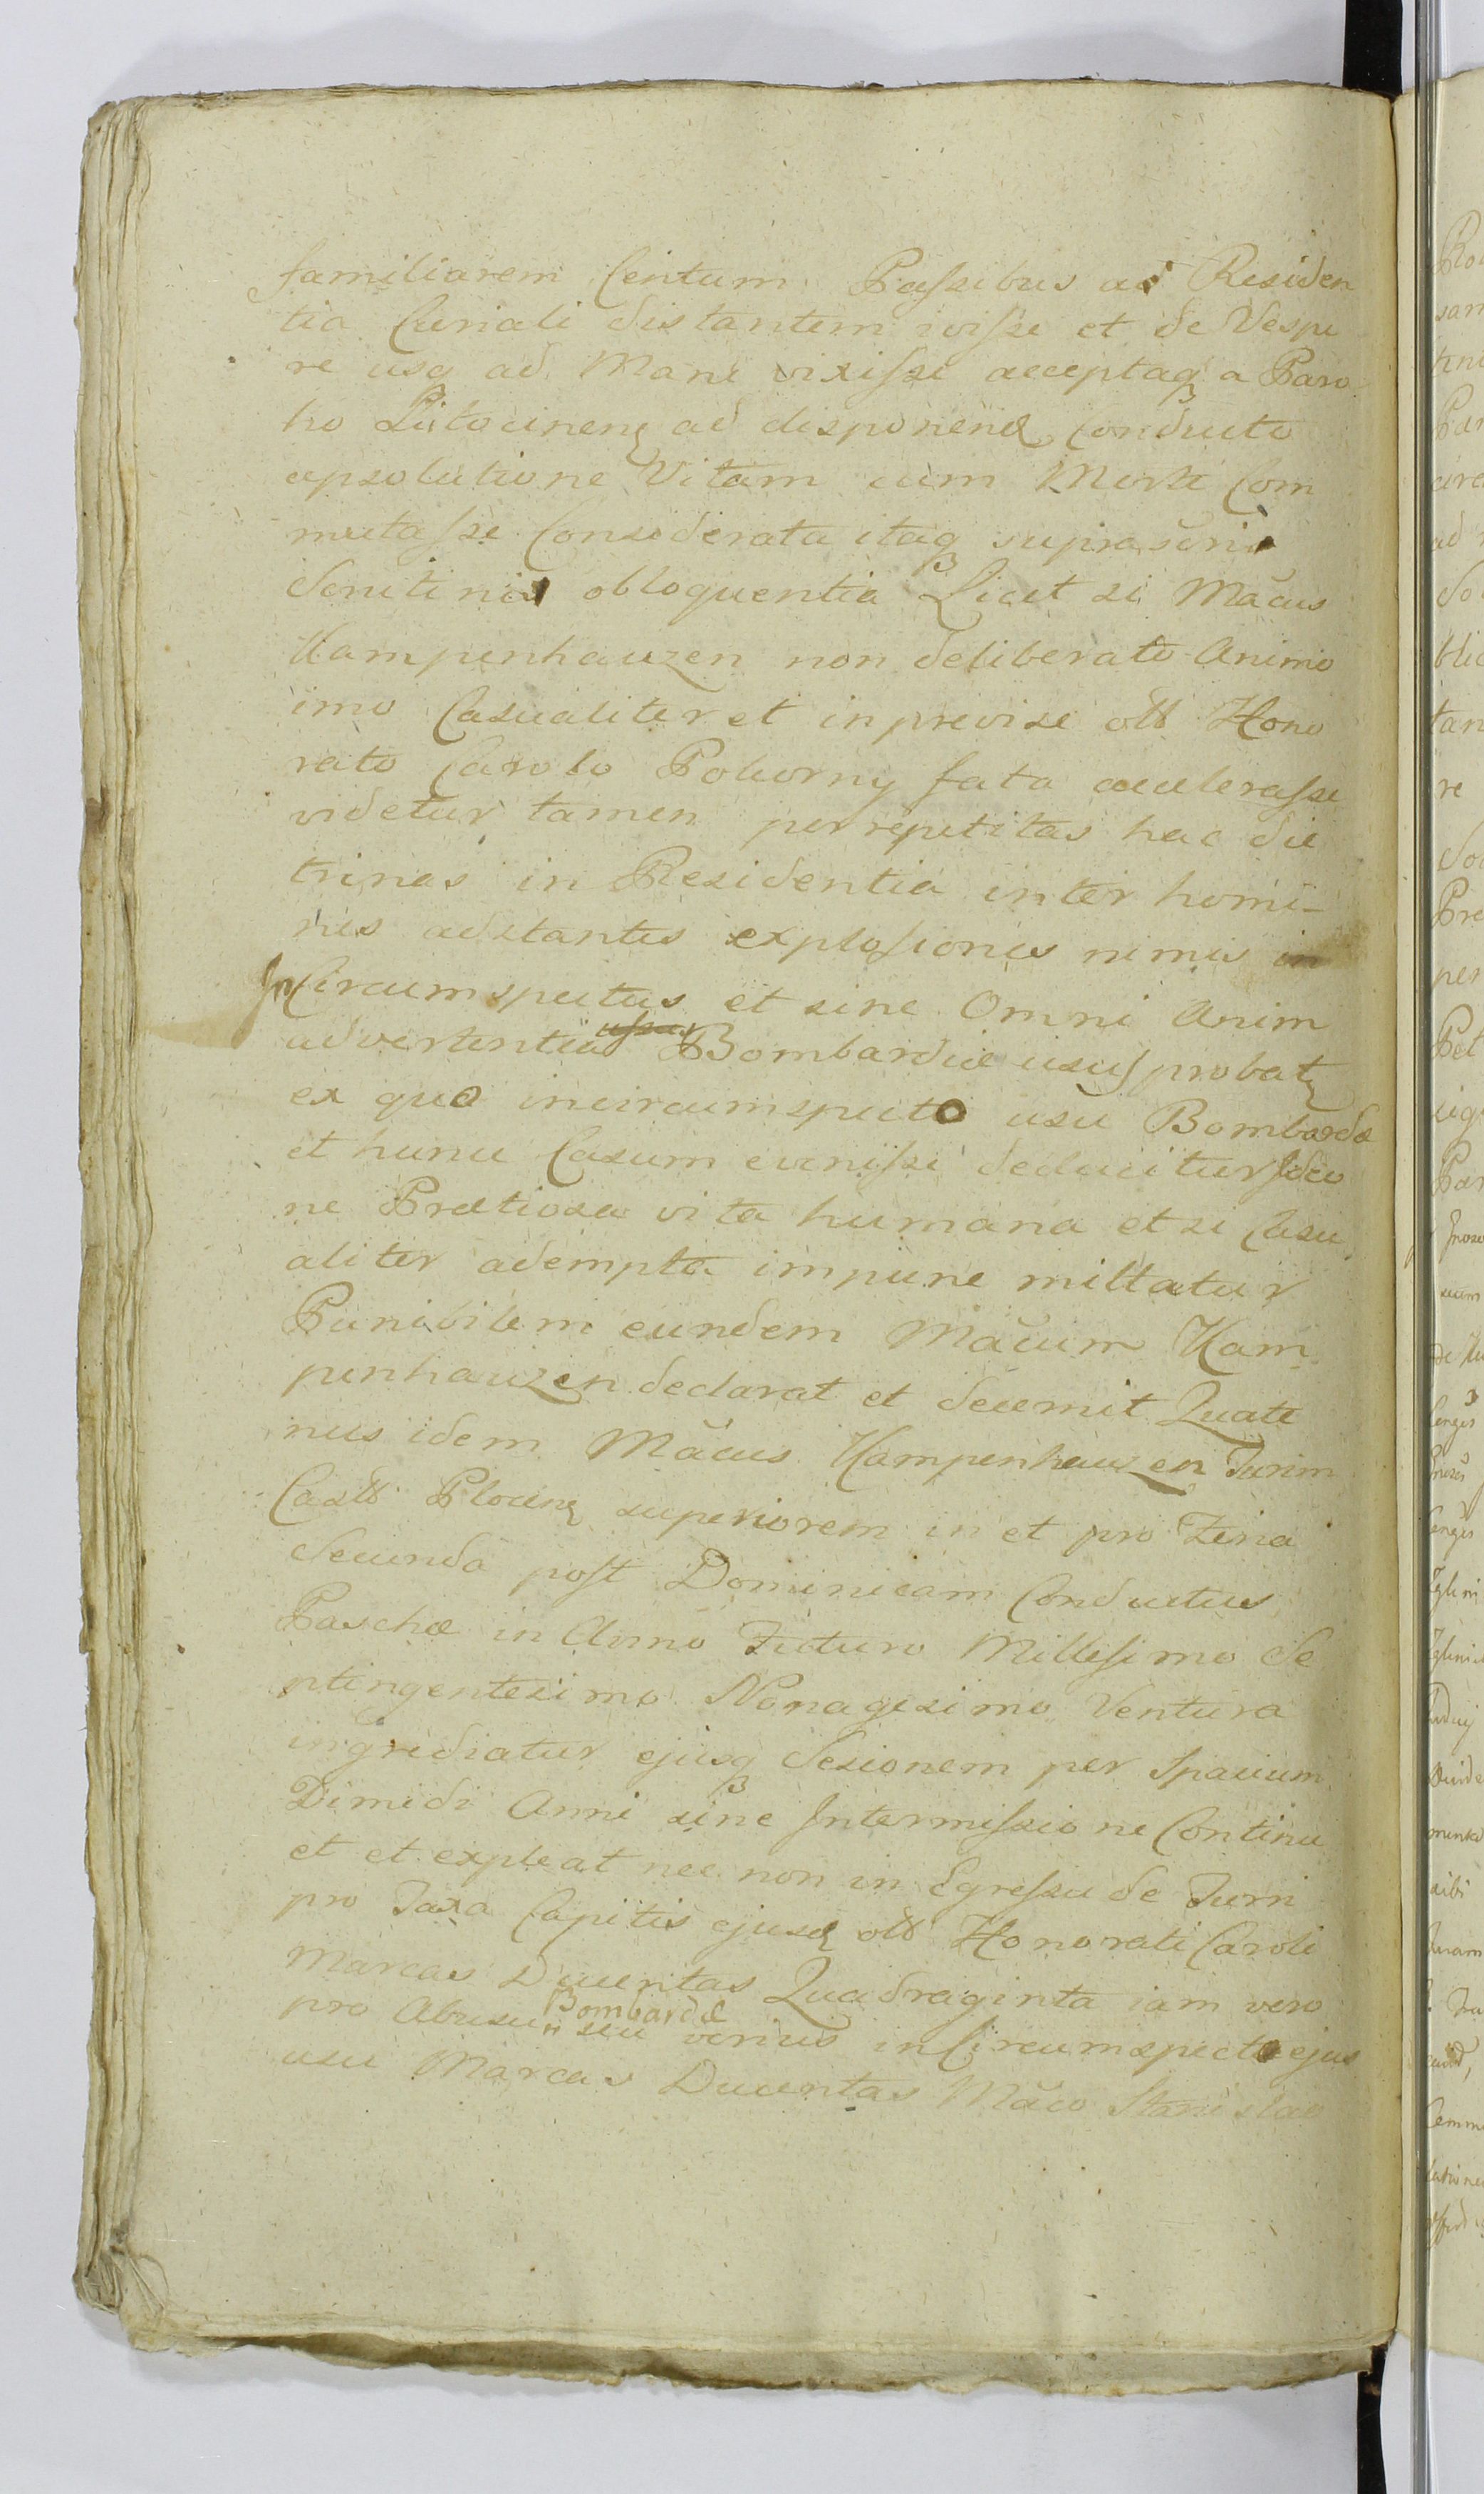 familiarem Centum Passibus a Residen
tia Curiali distantem ivisse et de Vespe
re usq ad Mane vixisse acceptaq a Paro
ho ad disponend Conducto
apsolutione Vitam cum Morte Com
mutasse Considerata itaq supra
obloquentia Licet si Mãcus
Kampenhauzen non deliberato Animo
imo Casualiter et inprevise olt Hono
rato Carolo Pohorny fata accelerasse
videtur tamen per repetitas hac die
trinas in Residentia inter homi-
nes adstantes explosiones nimis in
InCircumspectus et sine Omni Anim
advertentia Bombardæ usus probat
ex quo incircumspecto usu Bombardæ
et hunc Casum evenisse deducitur Ideo
ne Prætiosa vita humana etsi Casu
aliter adempta impune mittatur
Punibilem eundem Mãcum Kam
penhauzen declarat et decernit Quate
nus idem Mãcus Kampenhauzen Turim
Cast Plocen superiorem in et pro Feria
Secunda post Dominicam Conductus
Paschæ in Anno Futuro Millesimo Se
ptingentesimo Nonagesimo Ventura
ingrediatur ejusq Sesionem per Spacium
Dimidi Anni sine Intermissione Continu
et et expleat nec non in Egressu de Turri
pro Taxa Capitis ejusd olt Honorati Caroli
Marcas Ducentas Quadraginta iam vero
pro Abusu Bombardæ seu verius inCircumspecto ejus
usu Marcas Ducentas Mãco Stanislao